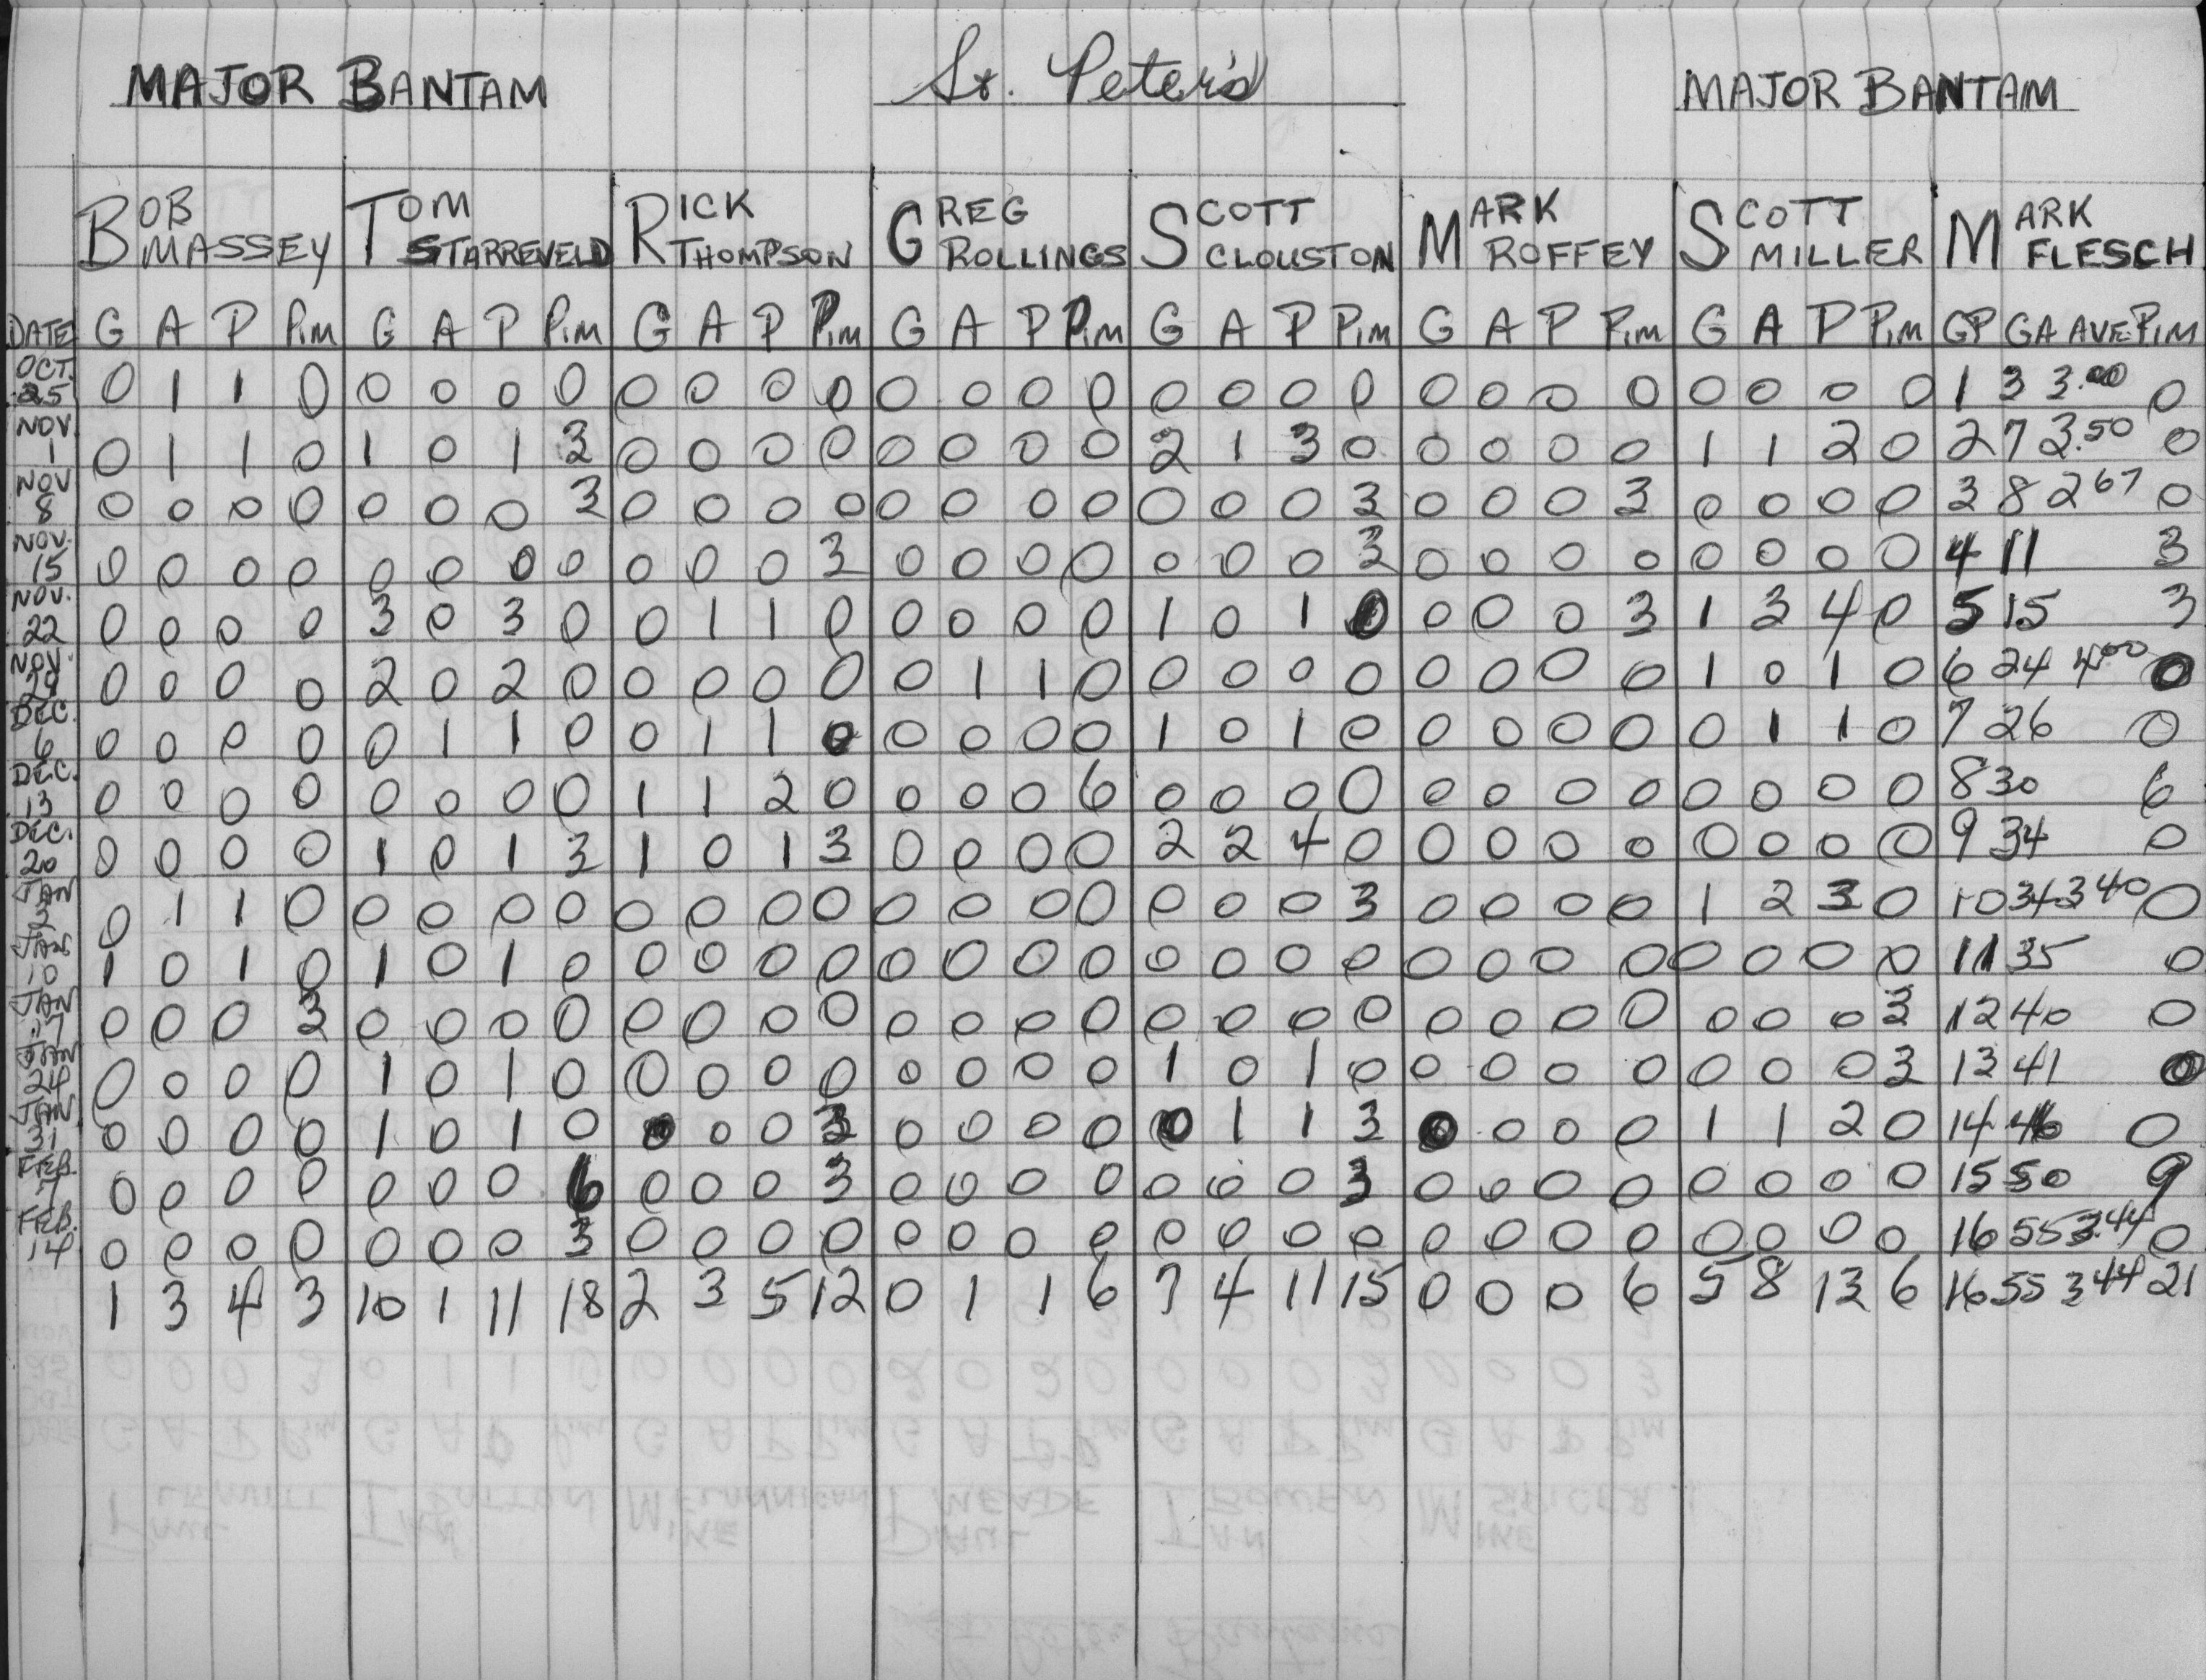 MAJOR BANTAM St. Peter's MAJOR BANTAM
BOB MASSEY TOM STARREVELD RICK THOMPSON GREG ROLLINGS SCOTT CLOUSTON MARK ROFFEY SCOTT MILLER MARK FLESCH
DATE G A P PiM G A P PiM G A P PiM G A P PiM G A P PiM G A P PiM G A P PiM GP GA AVE PiM
OCT. 25 0 1 1 0 0 0 0 0 0 0 0 0 0 0 0 0 0 0 0 0 0 0 0 0 0 0 0 0 1 3 3.00 0
NOV 1 0 1 1 0 1 0 1 3 0 0 0 0 0 0 0 0 2 1 3 0 0 0 0 0 1 1 2 0 2 7 3.50 0
NOV 8 0 0 0 0 0 0 0 3 0 0 0 0 0 0 0 0 0 0 0 3 0 0 0 3 0 0 0 0 3 8 2 67 0
NOV. 15 0 0 0 0 0 0 0 0 0 0 0 3 0 0 0 0 0 0 0 3 0 0 0 0 0 0 0 0 4 11 3
NOV. 22 0 0 0 0 3 0 3 0 0 1 1 0 0 0 0 0 1 0 1 0 0 0 0 3 1 3 4 0 5 15 3
NOV. 29 0 0 0 0 2 0 2 0 0 0 0 0 0 1 1 0 0 0 0 0 0 0 0 0 1 0 1 0 6 24 4 00 0
DEC. 6 0 0 0 0 0 1 1 0 0 1 1 0 0 0 0 0 1 0 1 0 0 0 0 0 0 1 1 0 7 26 0
DEC. 13 0 0 0 0 0 0 0 0 1 1 2 0 0 0 0 6 0 0 0 0 0 0 0 0 0 0 0 0 8 30 6
DEC. 20 0 0 0 0 1 0 1 3 1 0 1 3 0 0 0 0 2 2 4 0 0 0 0 0 0 0 0 0 9 34 0
JAN 3 0 1 1 0 0 0 0 0 0 0 0 0 0 0 0 0 0 0 0 3 0 0 0 0 1 2 3 0 10 34 3 40 0
JAN 10 1 0 1 0 1 0 1 0 0 0 0 0 0 0 0 0 0 0 0 0 0 0 0 0 0 0 0 0 11 35 0
JAN 17 0 0 0 3 0 0 0 0 0 0 0 0 0 0 0 0 0 0 0 0 0 0 0 0 0 0 0 3 12 40 0
JAN 24 0 0 0 0 1 0 1 0 0 0 0 0 0 0 0 0 1 0 1 0 0 0 0 0 0 0 0 3 13 41 0
JAN 31 0 0 0 0 1 0 1 0 0 0 0 3 0 0 0 0 0 1 1 3 0 0 0 0 1 1 2 0 14 46 0
FEB. 7 0 0 0 0 0 0 0 6 0 0 0 3 0 0 0 0 0 0 0 3 0 0 0 0 0 0 0 0 15 50 9
FEB. 14 0 0 0 0 0 0 0 3 0 0 0 0 0 0 0 0 0 0 0 0 0 0 0 0 0 0 0 0 16 55 3.44 0
1 3 4 3 10 1 11 18 2 3 5 12 0 1 1 6 7 4 11 15 0 0 0 6 5 8 13 6 16 55 3 44 21